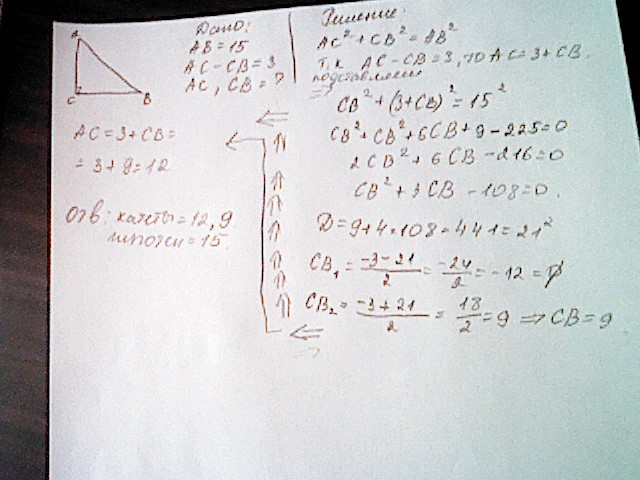 A
C
B
Дано:
AB = 15
AC - CB = 3
AC, CB = ?
Решение:
AC² + CB² = AB²
Т.к AC - CB = 3, то AC = 3 + CB.
подставляем
=> CB² + (3+CB)² = 15²
CB² + CB² + 6CB + 9 - 225 = 0
2CB² + 6CB - 216 = 0
CB² + 3CB - 108 = 0.
D = 9 + 4·108 = 441 = 21²
CB₁ = \frac{-3-21}{2} = \frac{-24}{2} = -12 = ∅
CB₂ = \frac{-3+21}{2} = \frac{18}{2} = 9 => CB = 9
AC = 3 + CB =
= 3 + 9 = 12
Отв: катеты = 12, 9
гипотен = 15.